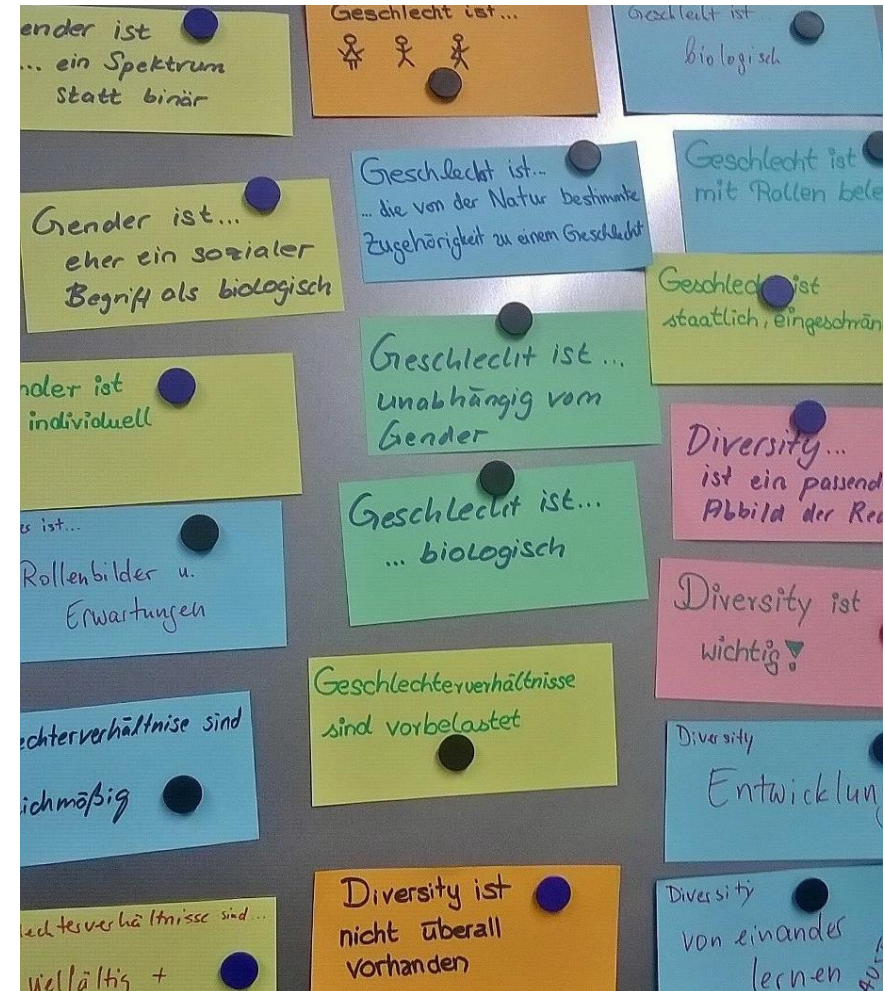 ender ist
... ein Spektrum
statt binär
Gender ist...
eher ein sozialer
Begriff als biologisch
nder ist
individuell
es ist...
Rollenbilder u.
Erwartungen
echterverhältnise sind
ichmäßig
echterverhältnisse sind...
vielfältig +
Geschlecht ist...
Geschlecht ist...
... die von der Natur bestimmte
Zugehörigkeit zu einem Geschlecht
Geschlecht ist...
unabhängig vom
Gender
Geschlecht ist...
... biologisch
Geschlechterverhältnisse
sind vorbelastet
Diversity ist
nicht überall
vorhanden
Geschlecht ist
biologisch
Geschlecht ist
mit Rollen bele
Geschlecht ist
staatlich, eingeschrän
Diversity...
ist ein passend
Abbild der Rea
Diversity ist
wichtig!
Diversity
Entwicklun
Diversity
von einander
lernen